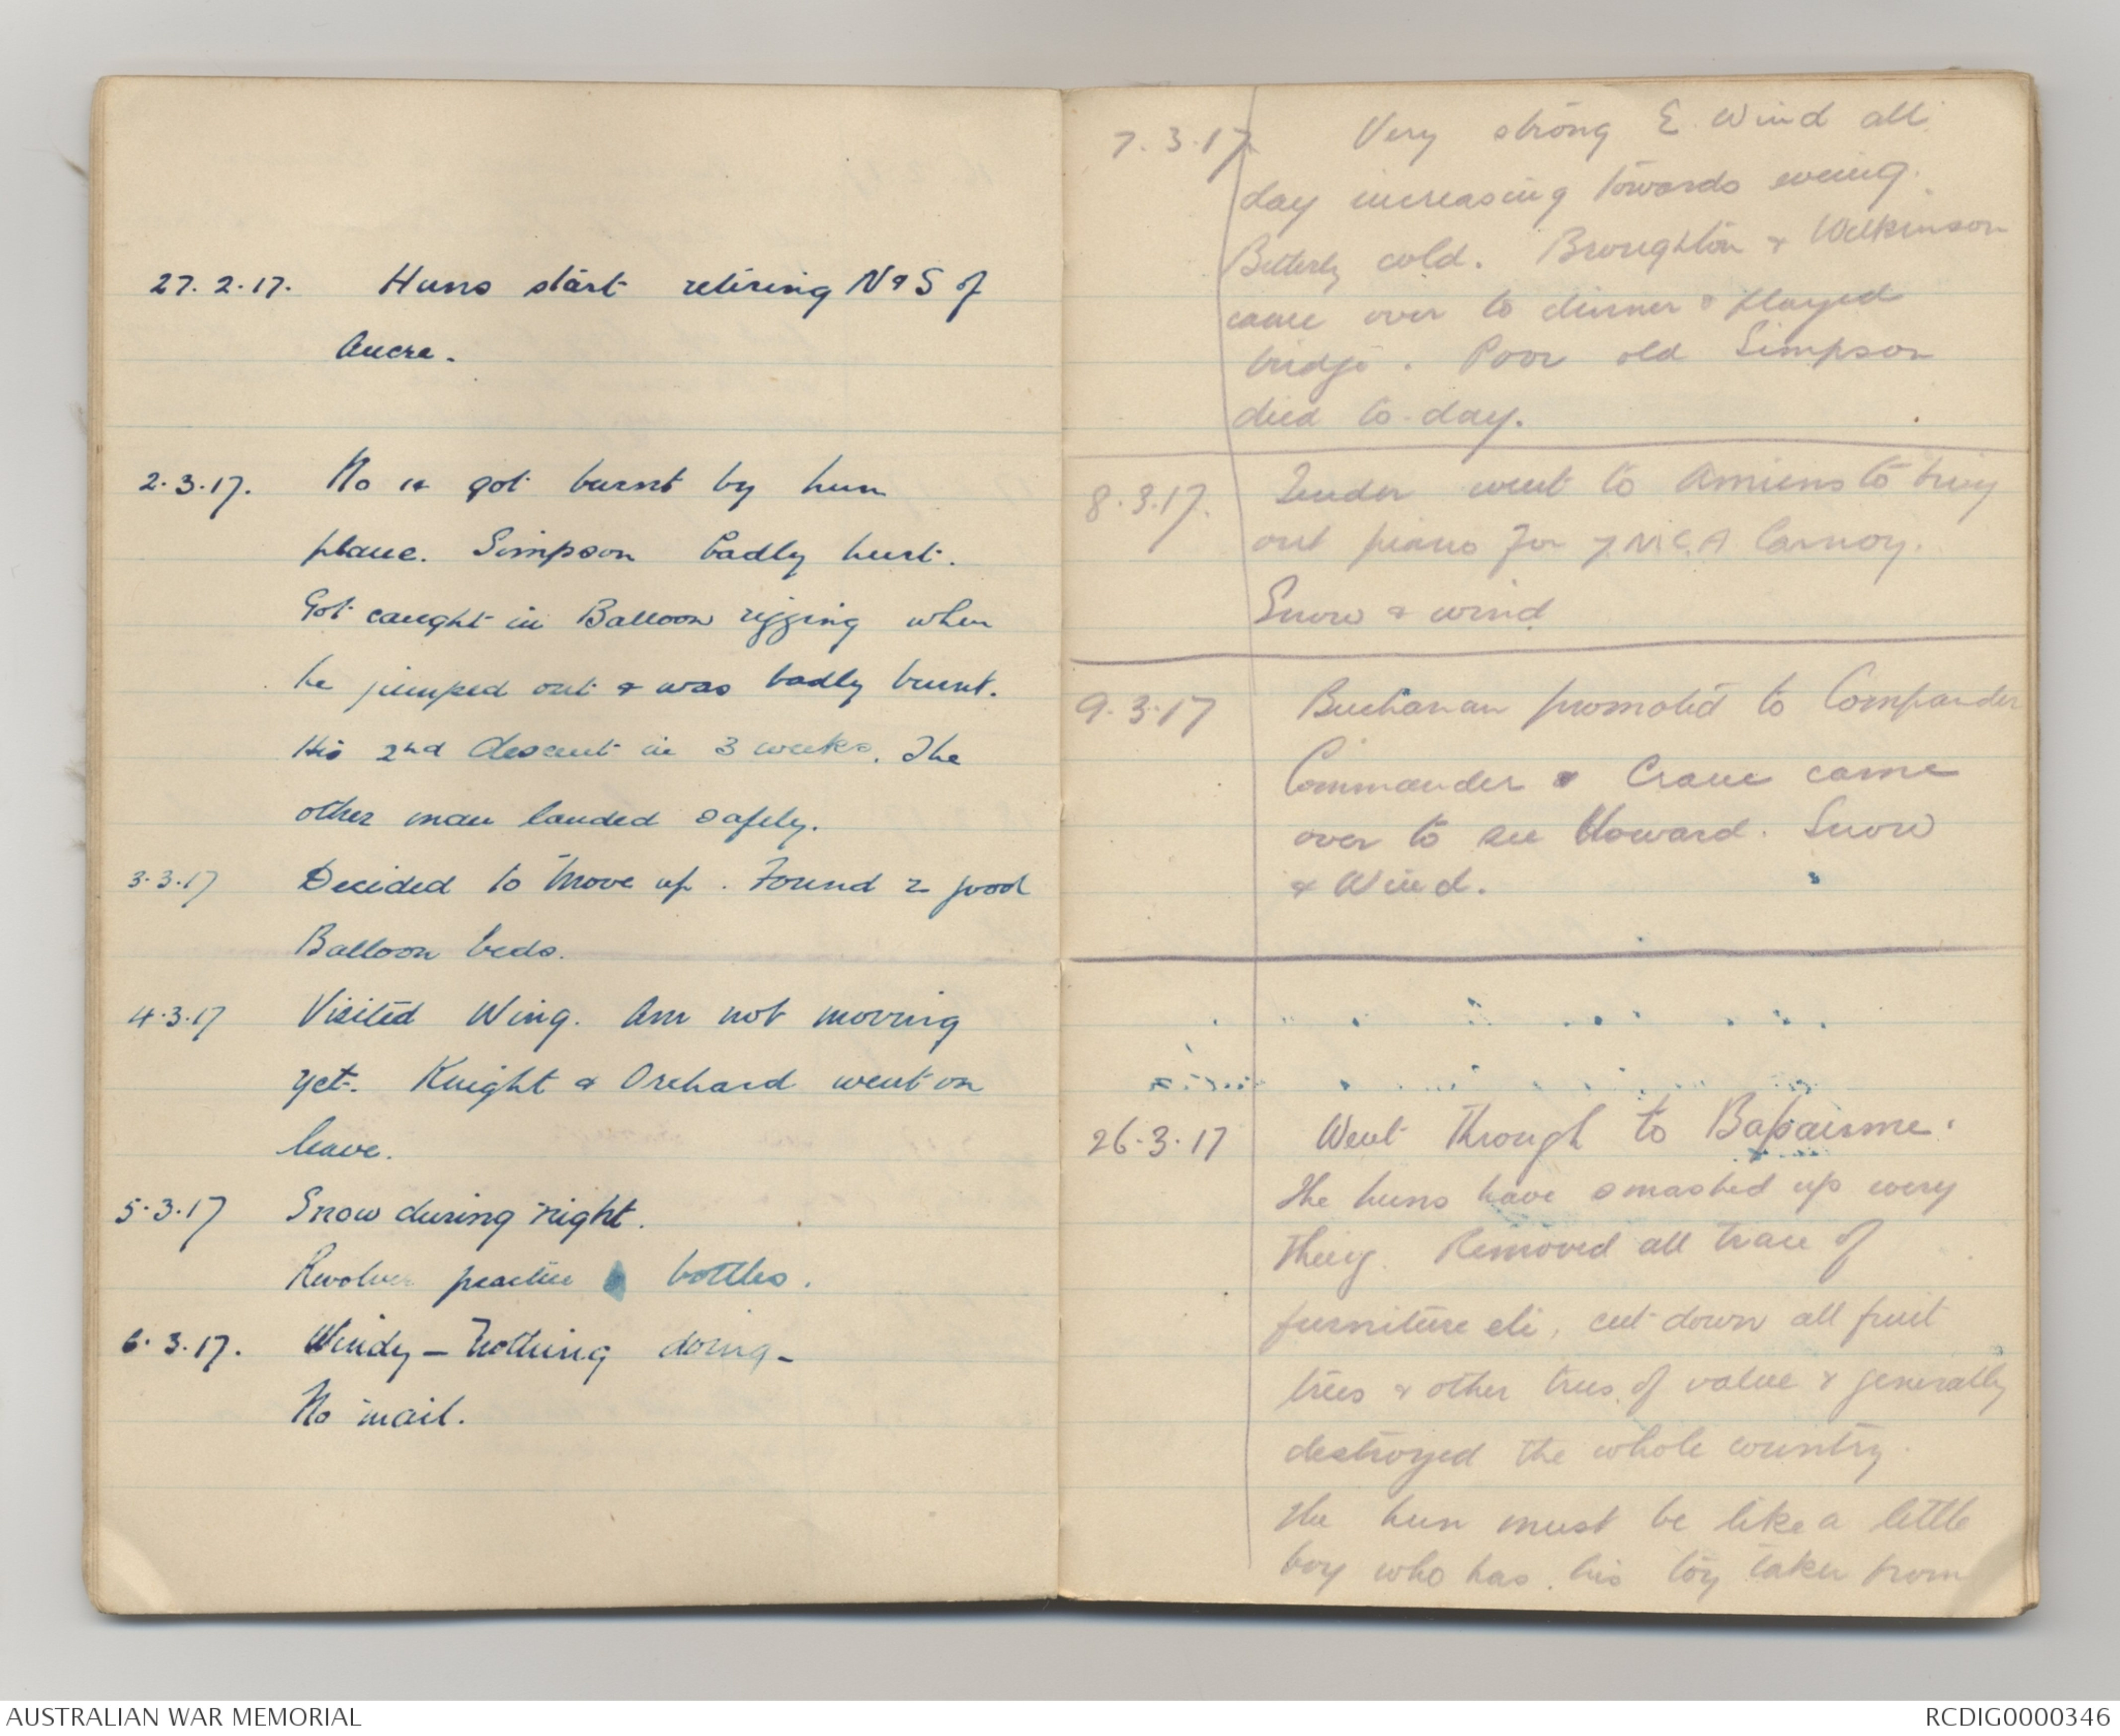 27.2.17. Huns start retiring N & S of
Ancre.
2.3.17. No 14 got burnt by hun
plane. Simpson badly hurt.
Got caught in Balloon rigging when
he jumped out & was badly burnt.
His 2nd descent in 3 weeks. The
other man landed safely.
3.3.17 Decided to move up. Found 2 good
Balloon beds.
4.3.17 Visited Wing. Am not moving
yet. Knight & Orchard went on
leave.
5.3.17 Snow during night.
Revolver practice bottles.
6.3.17. Windy - Nothing doing -
No mail.
7.3.17 Very strong E. Wind all
day increasing towards evening.
Bitterly cold. Broughton & Wilkinson
came over to dinner & played
bridge. Poor old Simpson
died to-day.
8.3.17. Tender went to Amiens to bring
out piano for Y.M.C.A Carnoy.
Snow & wind
9.3.17 Buchanan promoted to
Commander & Crane came
over to see Howard. Snow
& Wind.
26.3.17 Went through to Bapaume.
The huns have smashed up every
thing. Removed all trace of
furniture etc, cut down all fruit
trees & other trees of value & generally
destroyed the whole country.
The hun must be like a little
boy who has his toy taken from
AUSTRALIAN WAR MEMORIAL
RCDIG0000346